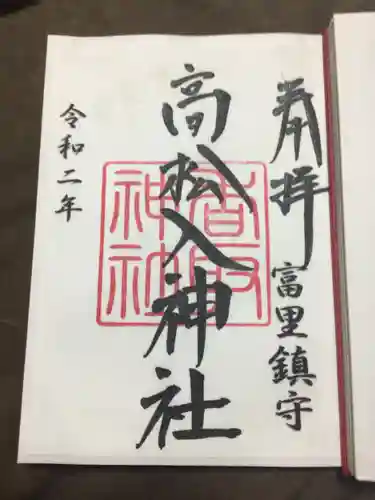 奉拝
富里鎮守
高松入神社
香取神社
令和二年